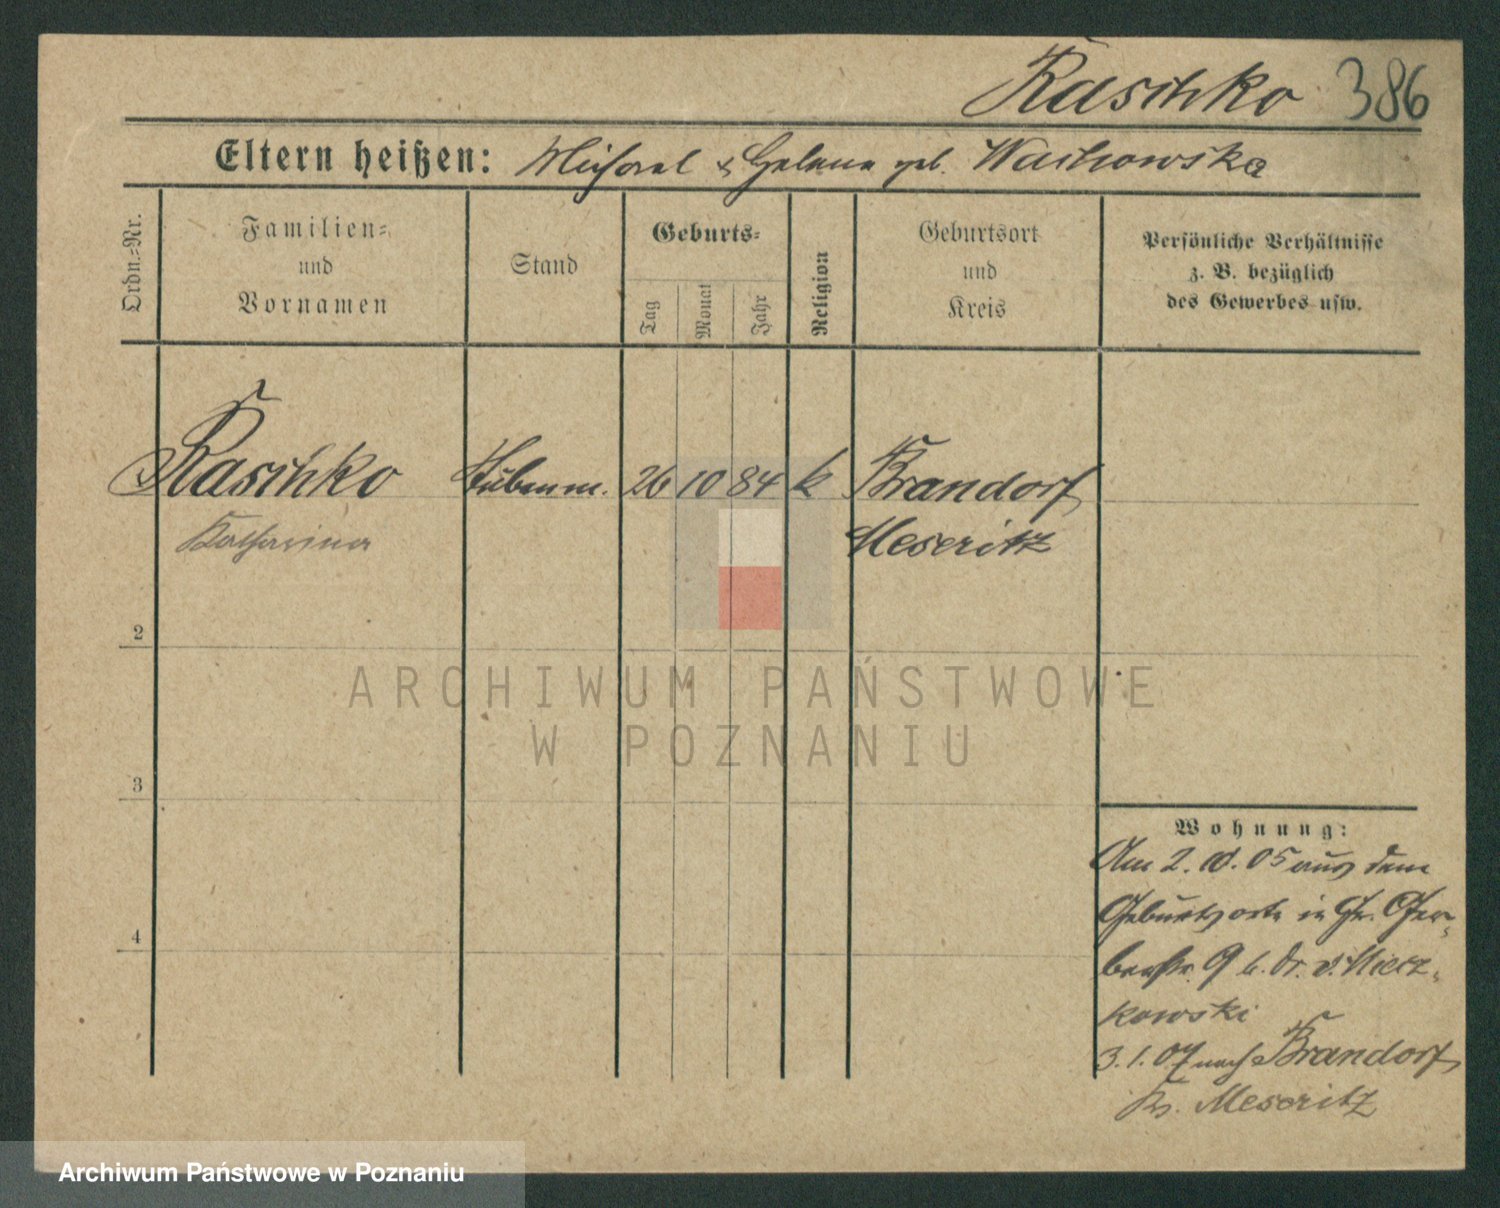 Raschko 386
Eltern heißen: Michael & Helene geb. Waihowska
Ordn.-Nr.
Familien-
und
Vornamen
Stand
Geburts-
Tag
Monat
Jahr
Religion
Geburtsort
und
Kreis
Persönliche Verhältnisse
z. B. bezüglich
des Gewerbes usw.
Raschko Stubenm. 26 10 84 k Brandorf
Katharina Meseritz
2
3
4
ARCHIWUM PAŃSTWOWE
W POZNANIU
Wohnung:
Am 2. 10. 05 aus dem
Geburtsorte in Gr. Ger-
berstr. 9 b. Dr. v. Miecz-
kowski
3. 1. 07 nach Brandorf
Kr. Meseritz
Archiwum Państwowe w Poznaniu